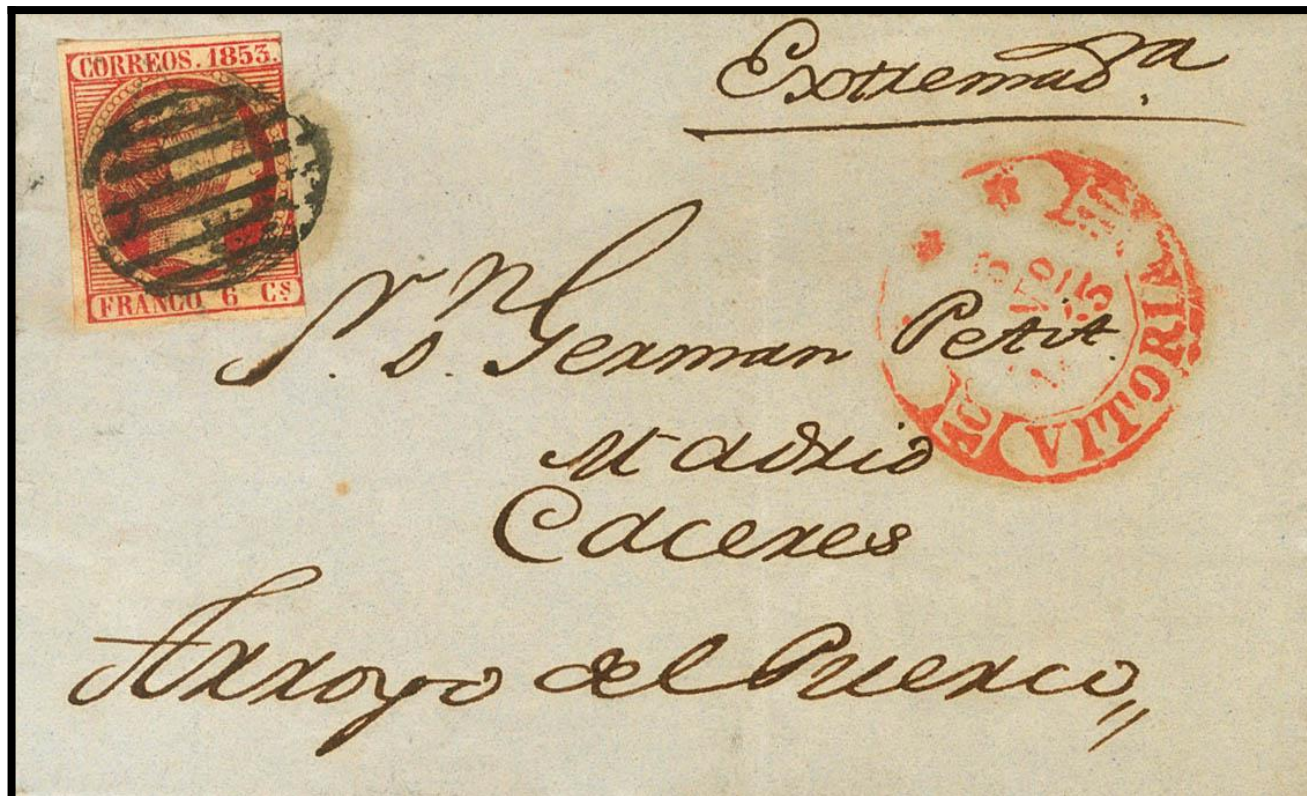 CORREOS. 1853.
FRANCO 6 Cs
Extremadª.
Sr. Dn. German Petit.
Madrid
Caceres
Arroyo del Puerco,,
VITORIA